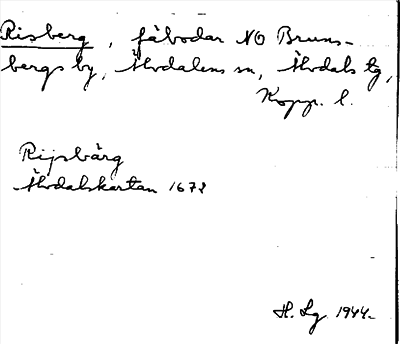 Risberg, fäbodar NO Bruns-
bergs by, Älvdalens sn, Älvdals tg,
Kopp. l.
Rijsbärg
Älvdalskartan 1678
H. Lg 1944.